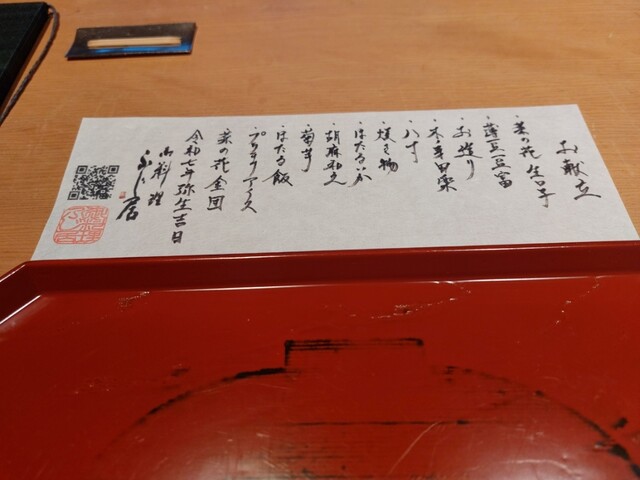 お献立
・菜の花 生口子
・蓮豆豆富
・お造り
・八寸
・焼き物
・ほたるいか
胡麻和え
・菊芋
・ほたる飯
・プラリアイス
菜の花金団
令和七年弥生吉日
御料理
ふじ居